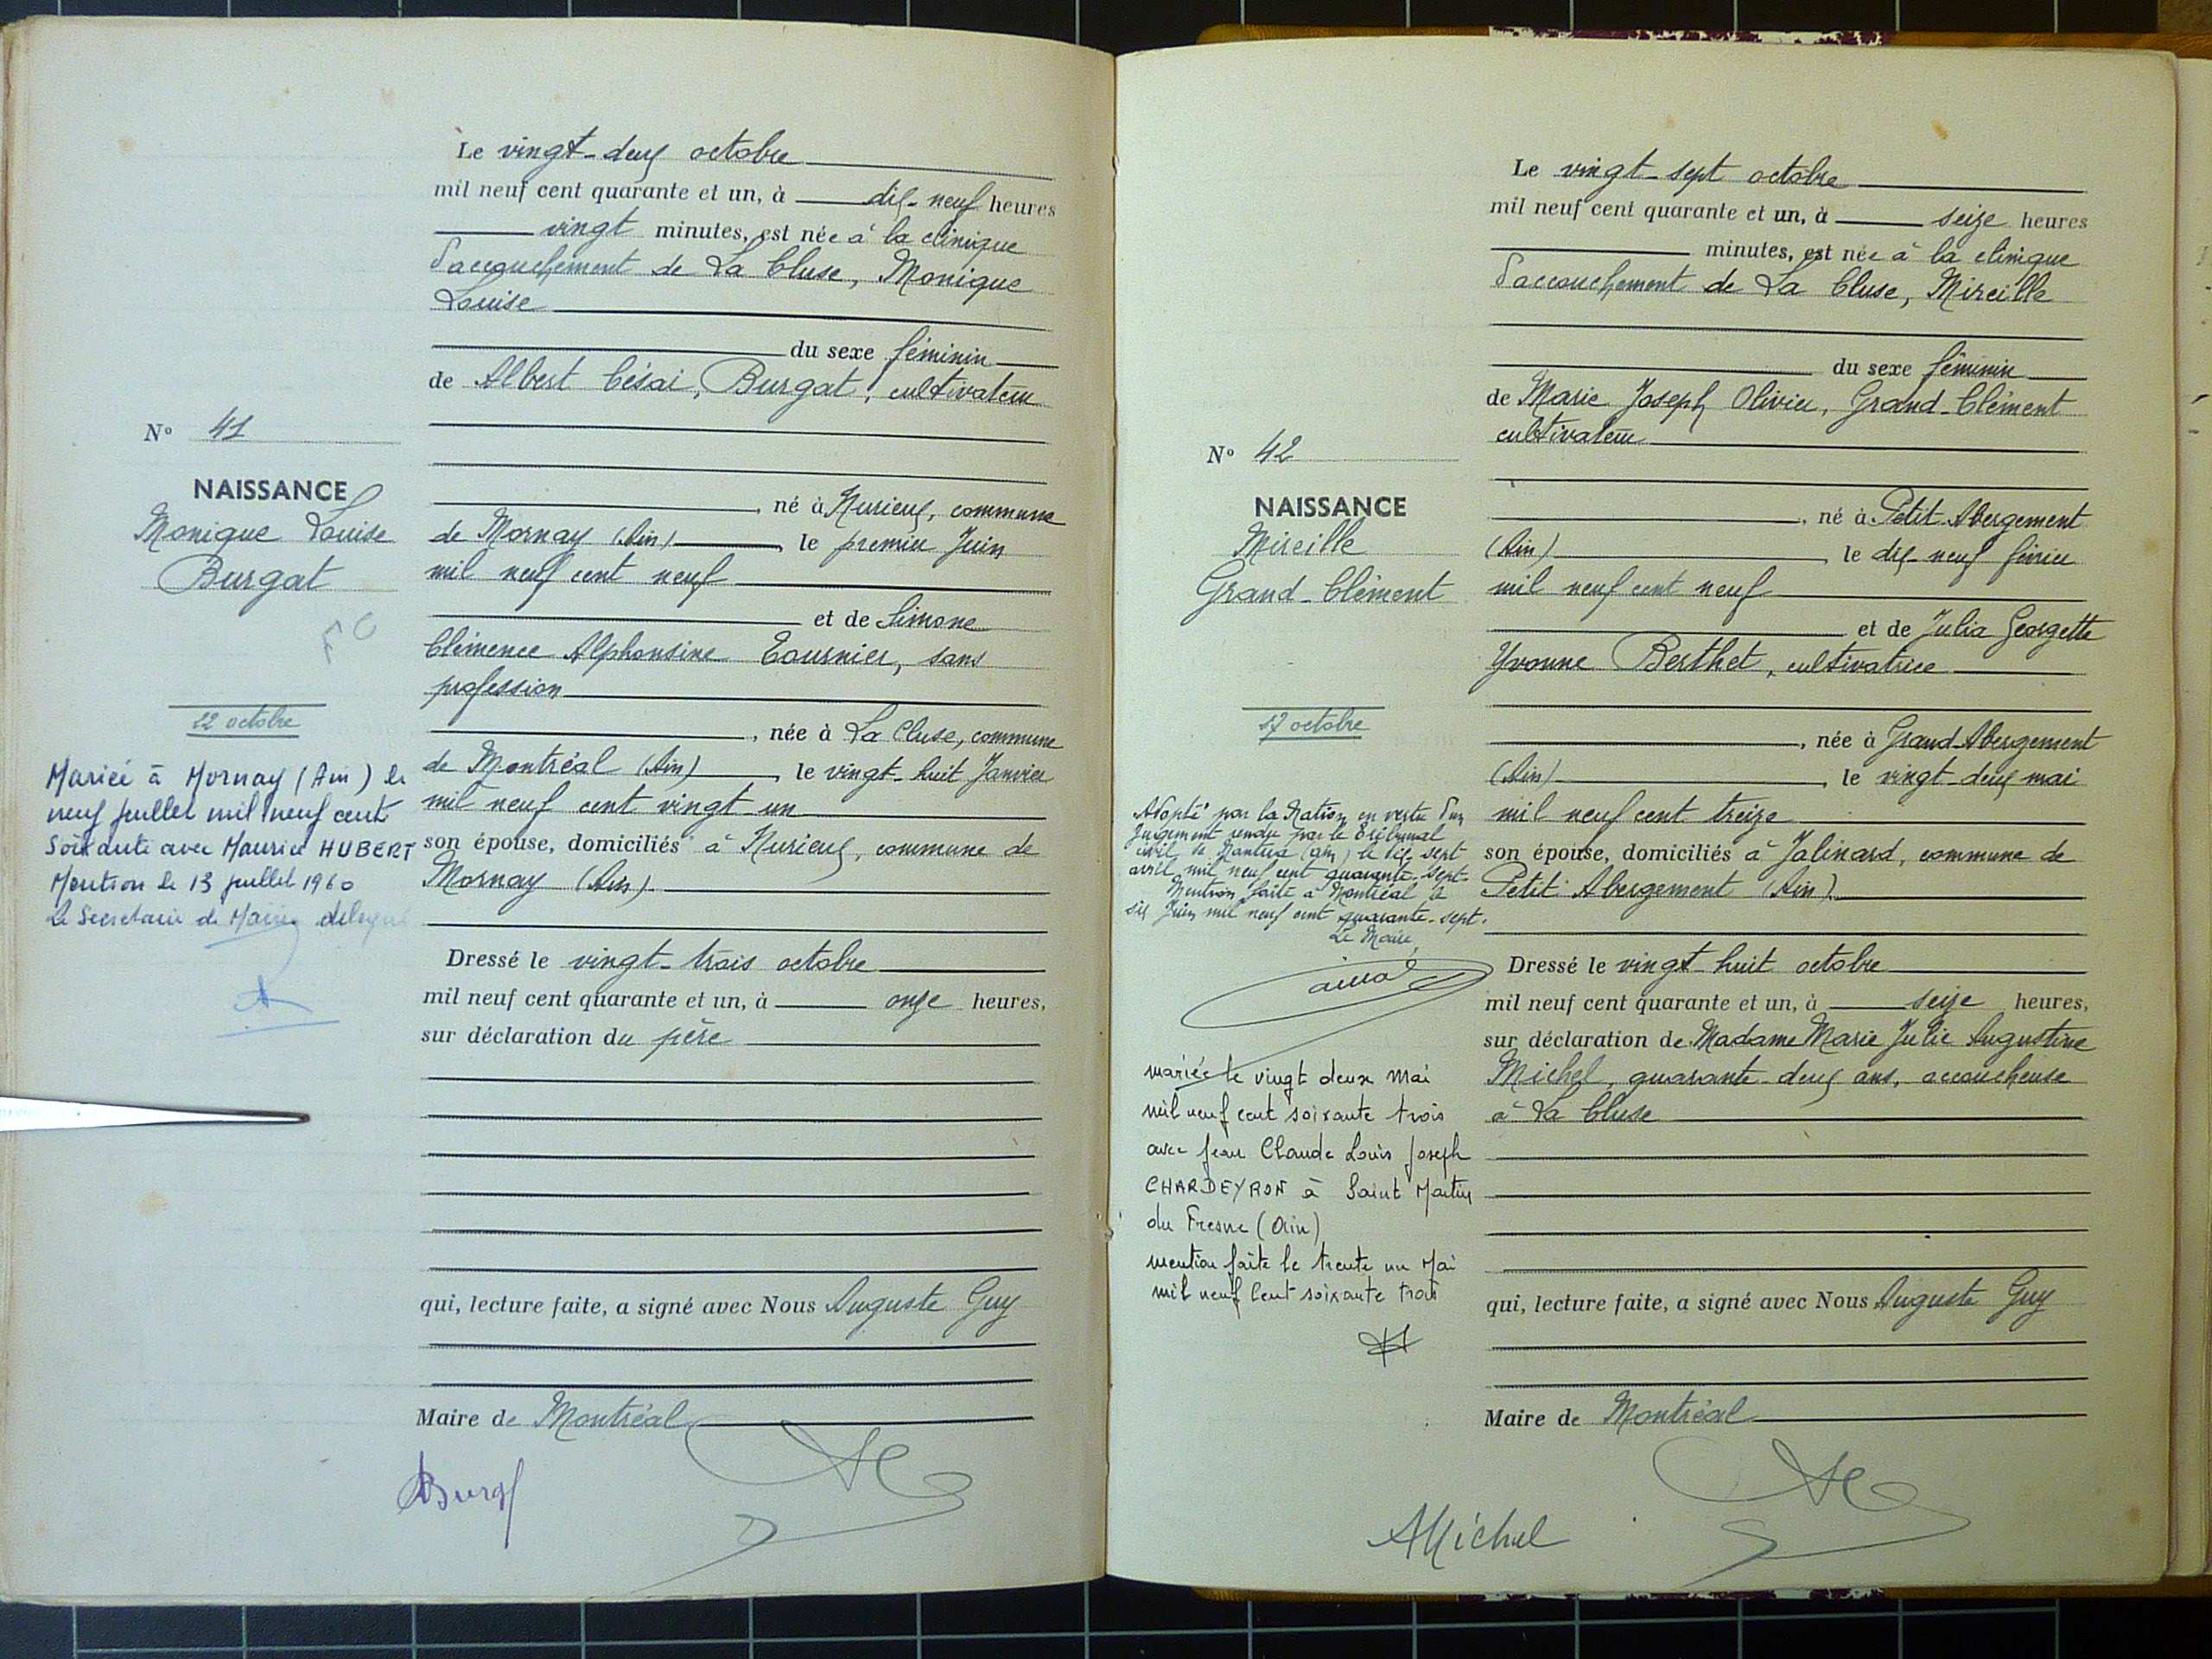 Le vingt-deux octobre
mil neuf cent quarante et un, à dix-neuf heures
vingt minutes, est née à la clinique
d'accouchement de La Cluse, Monique
Louise
du sexe féminin
de Albert Césai, Burgat, cultivateur
N° 41
NAISSANCE
Monique Louise
Burgat
né à Nurieux, commune
de Mornay (Ain), le premier Juin
mil neuf cent neuf
et de Simone
Clémence Alphonsine Tournier, sans
profession
22 octobre
, née à La Cluse, commune
de Montréal (Ain), le vingt-huit Janvier
mil neuf cent vingt-un
son épouse, domiciliés à Nurieux, commune de
Mornay (Ain).
Mariée à Mornay (Ain) le
neuf juillet mil neuf cent
soixante avec Maurice HUBERT
Mention le 13 juillet 1960
Le Secrétaire de Mairie délégué
Dressé le vingt-trois octobre
mil neuf cent quarante et un, à onze heures,
sur déclaration du père
qui, lecture faite, a signé avec Nous Auguste Guy
Maire de Montréal
ABurgat
Le vingt-sept octobre
mil neuf cent quarante et un, à seize heures
minutes, est née à la clinique
d'accouchement de La Cluse, Mireille
du sexe féminin
de Marie Joseph Olivier, Grand-Clément
cultivateur
N° 42
NAISSANCE
Mireille
Grand-Clément
, né à Petit-Abergement
(Ain), le dix-neuf février
mil neuf cent neuf
et de Julia Georgette
Yvonne Berthet, cultivatrice
27 octobre
, née à Grand-Abergement
(Ain), le vingt-deux mai
mil neuf cent treize
son épouse, domiciliés à Jalinard, commune de
Petit-Abergement (Ain).
Adopté par la Nation en vertu d'un
Jugement rendu par le Tribunal
civil de Nantua (Ain) le dix-sept
avril mil neuf cent quarante-sept.
Mention faite à Montréal le
six Juin mil neuf cent quarante-sept.
Le Maire,
mariée le vingt deux Mai
mil neuf cent soixante trois
avec Jean Claude Louis Joseph
CHARDEYRON à Saint Martin
du Fresne (Ain)
mention faite le trente un Mai
mil neuf cent soixante trois
Dressé le vingt-huit octobre
mil neuf cent quarante et un, à seize heures,
sur déclaration de Madame Marie Julie Augustine
Michel, quarante-deux ans, accoucheuse
à La Cluse
qui, lecture faite, a signé avec Nous Auguste Guy
Maire de Montréal
AMichel